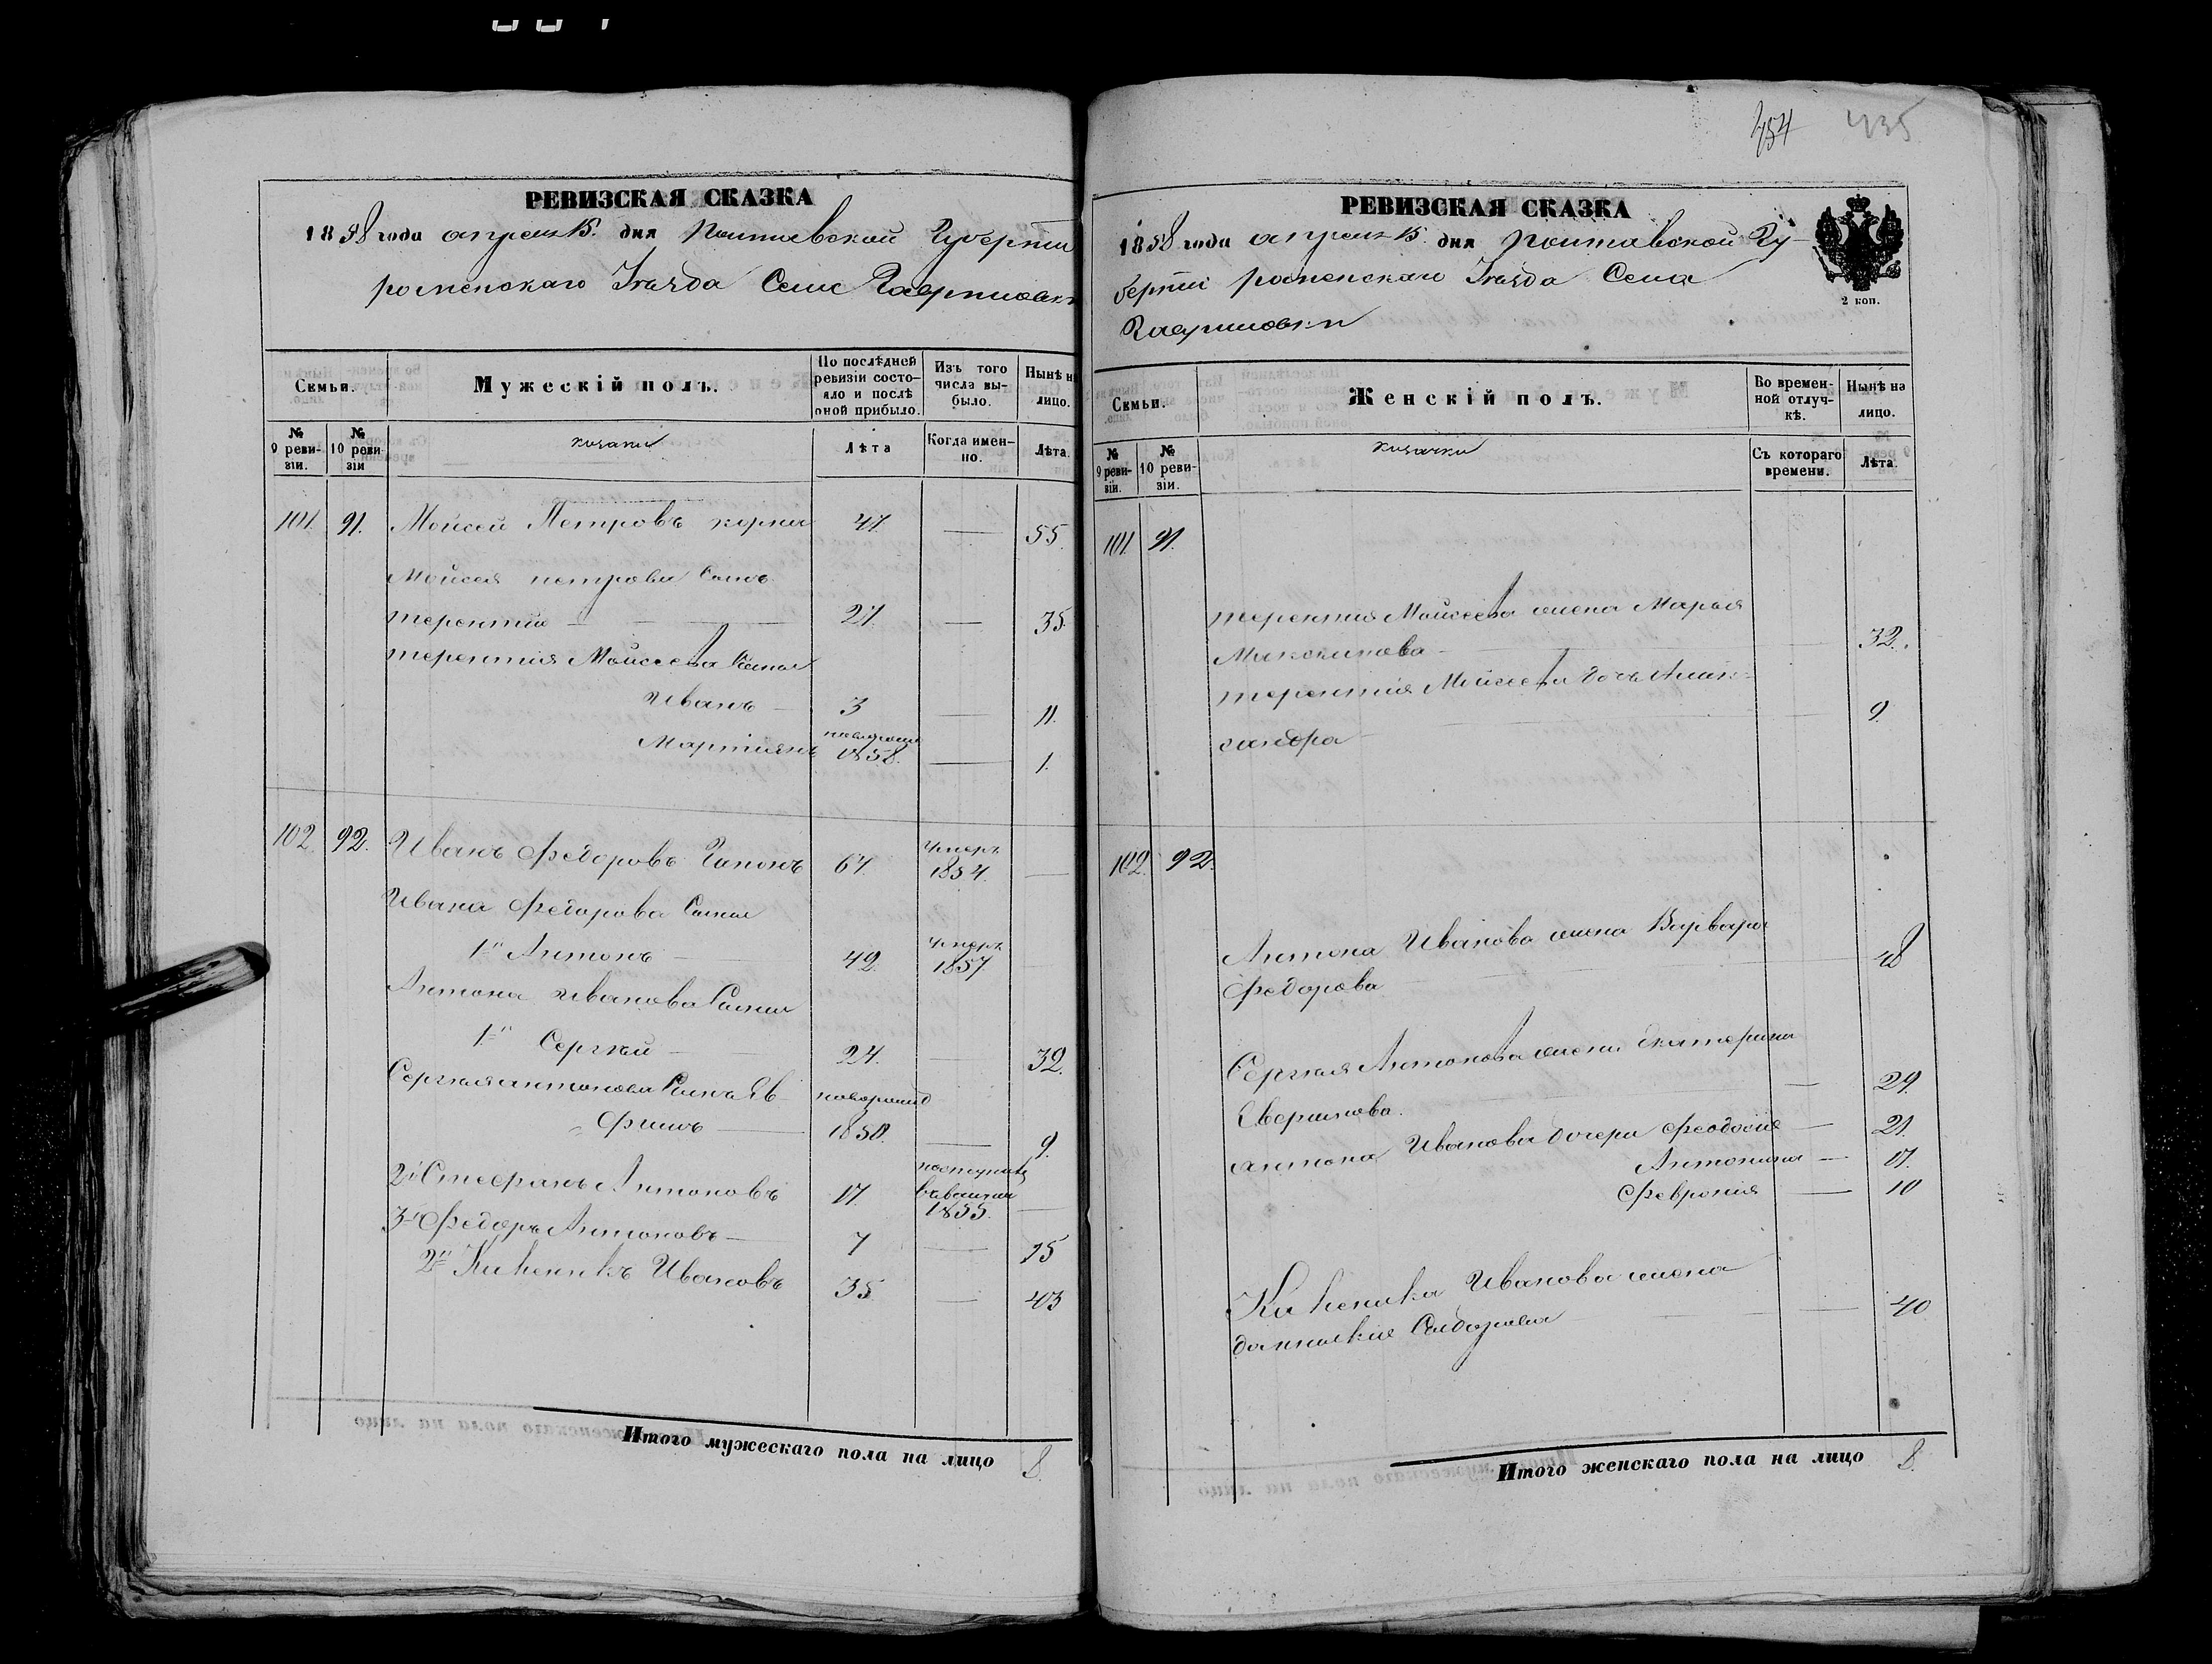 454 435
РЕВИЗСКАЯ СКАЗКА
1858 года апреля 15. дня Полтавской Губерніи
роменскаго Уезда Села Гавришовки
Семьи.
Мужескій полъ.
По послѣдней ревизіи состояло и послѣ оной прибыло.
Изъ того числа выбыло.
Нынѣ на лицо.
№ 9 ревизіи.
№ 10 ревизіи
козаки
Лѣта
Когда именно.
Лѣта.
101. 91. Мойсей Петровъ корна 47. — 55.
Мойсея петрова Сынъ
терентий — 27. — 35.
терентия Мойсеева Сыны
Иванъ — 3 — 11.
Мартинъ 1858. — 1.
102. 92. Иванъ Федоровъ Гапонъ 67. умеръ 1854. —
Ивана Федорова Сыны
1й Антонъ — 42. умеръ 1857
Антона Иванова Сыны
1й Сергѣй — 24. — 32.
Сергѣя антонова Сынъ Ев-
фимъ — новорожд 1850. — 9.
2й Стефанъ Антоновъ 17. поступилъ 1855. —
3й Федоръ Антоновъ — 7 — 15
2й Кикеникъ Ивановъ 35 — 43
Итого мужескаго пола на лицо 8.
РЕВИЗСКАЯ СКАЗКА
1858 года апреля 15. дня Полтавской Гу-
берніи роменскаго Уезда Села
Гавришовки
2 коп.
Семьи.
Женскій полъ.
Во временной отлучкѣ.
Нынѣ на лицо.
№ 9 ревизіи.
№ 10 ревизіи.
козачки
Съ котораго времени.
Лѣта.
101. 91.
терентия Мойсеева жена Марья
Максимова — 32.
терентия Мойсеева дочь Алек-
сандра — 9.
102. 92.
Антона Иванова жена Варвара
Федорова — 48
Сергѣя Антонова жена Екатерина
— 29.
антона Иванова дочери Феодосия — 21.
Антонина — 17.
Феврония — 10
Кикеника Иванова жена
Сидорова — 40
Итого женскаго пола на лицо 8.